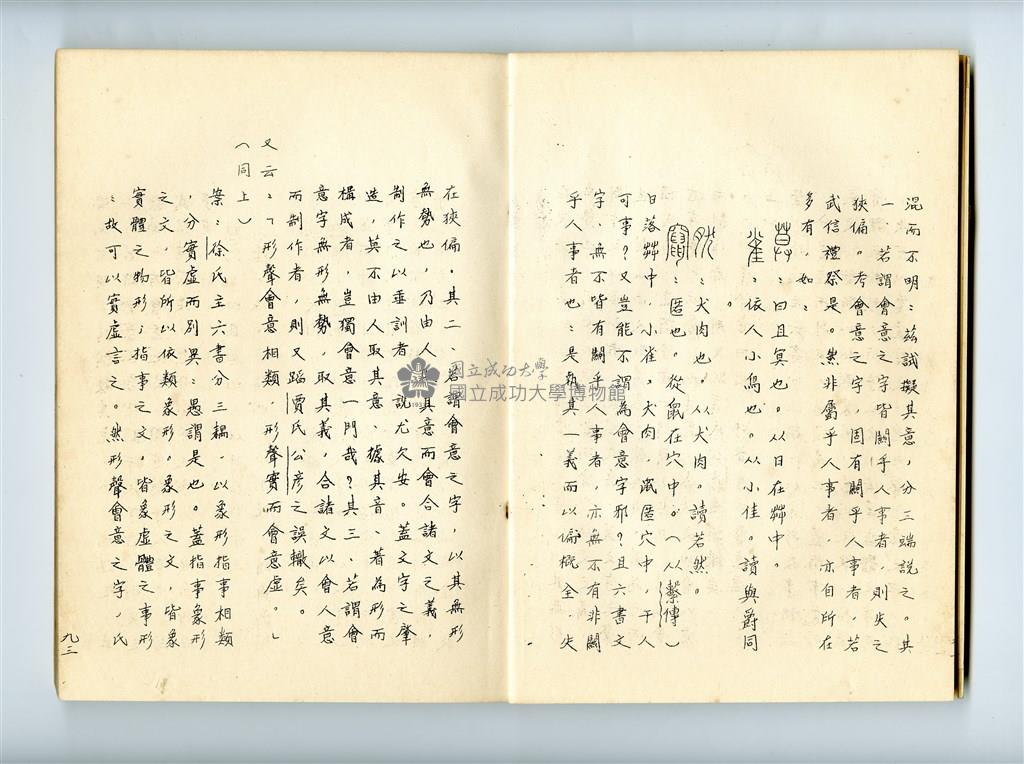 混而不明:茲試擬其意,分三端說之。其
一、若謂會意之字皆關乎人事者,則失之
狹偏。考會意之字,固有關乎人事者,若
武信禮祭是。然非屬乎人事者,亦自所在
多有,如:
莫:日且冥也。从日在茻中。
雀:依人小鳥也。从小隹。讀與爵同
。
肰:犬肉也。从犬肉。讀若然。
竄:匿也。從鼠在穴中。(从繫傳)
日落茻中,小雀,犬肉,鼠匿穴中,干人
可事?又豈能不謂為會意字邪?且六書文
字、無不皆有關乎人事者,亦無不有非關
乎人事者也:是執其一義而以偏概全,失
在狹偏。其二、若謂會意之字,以其無形
無勢也,乃由人取其意而會合諸文之義,
制作之以垂訓者,說尤欠安。蓋文字之肇
造,莫不由人取其意、據其音、著為形而
構成者,豈獨會意一門哉?其三、若謂會
意字無形無勢,取其義,合諸文以會人意
而制作者,則又蹈賈氏公彥之誤轍矣。
又云:「形聲會意相類,形聲實而會意虛。」
(同上)
案:徐氏主六書分三耦,以象形指事相類
,分實虛而別異:愚謂是也。蓋指事象形
之文,皆所以依類象形。象形之文,皆象
實體之物形;指事之文,皆象虛體之事形
:故可以實虛言之。然形聲會意之字,氏
九三
國立成功大學
國立成功大學博物館
1931